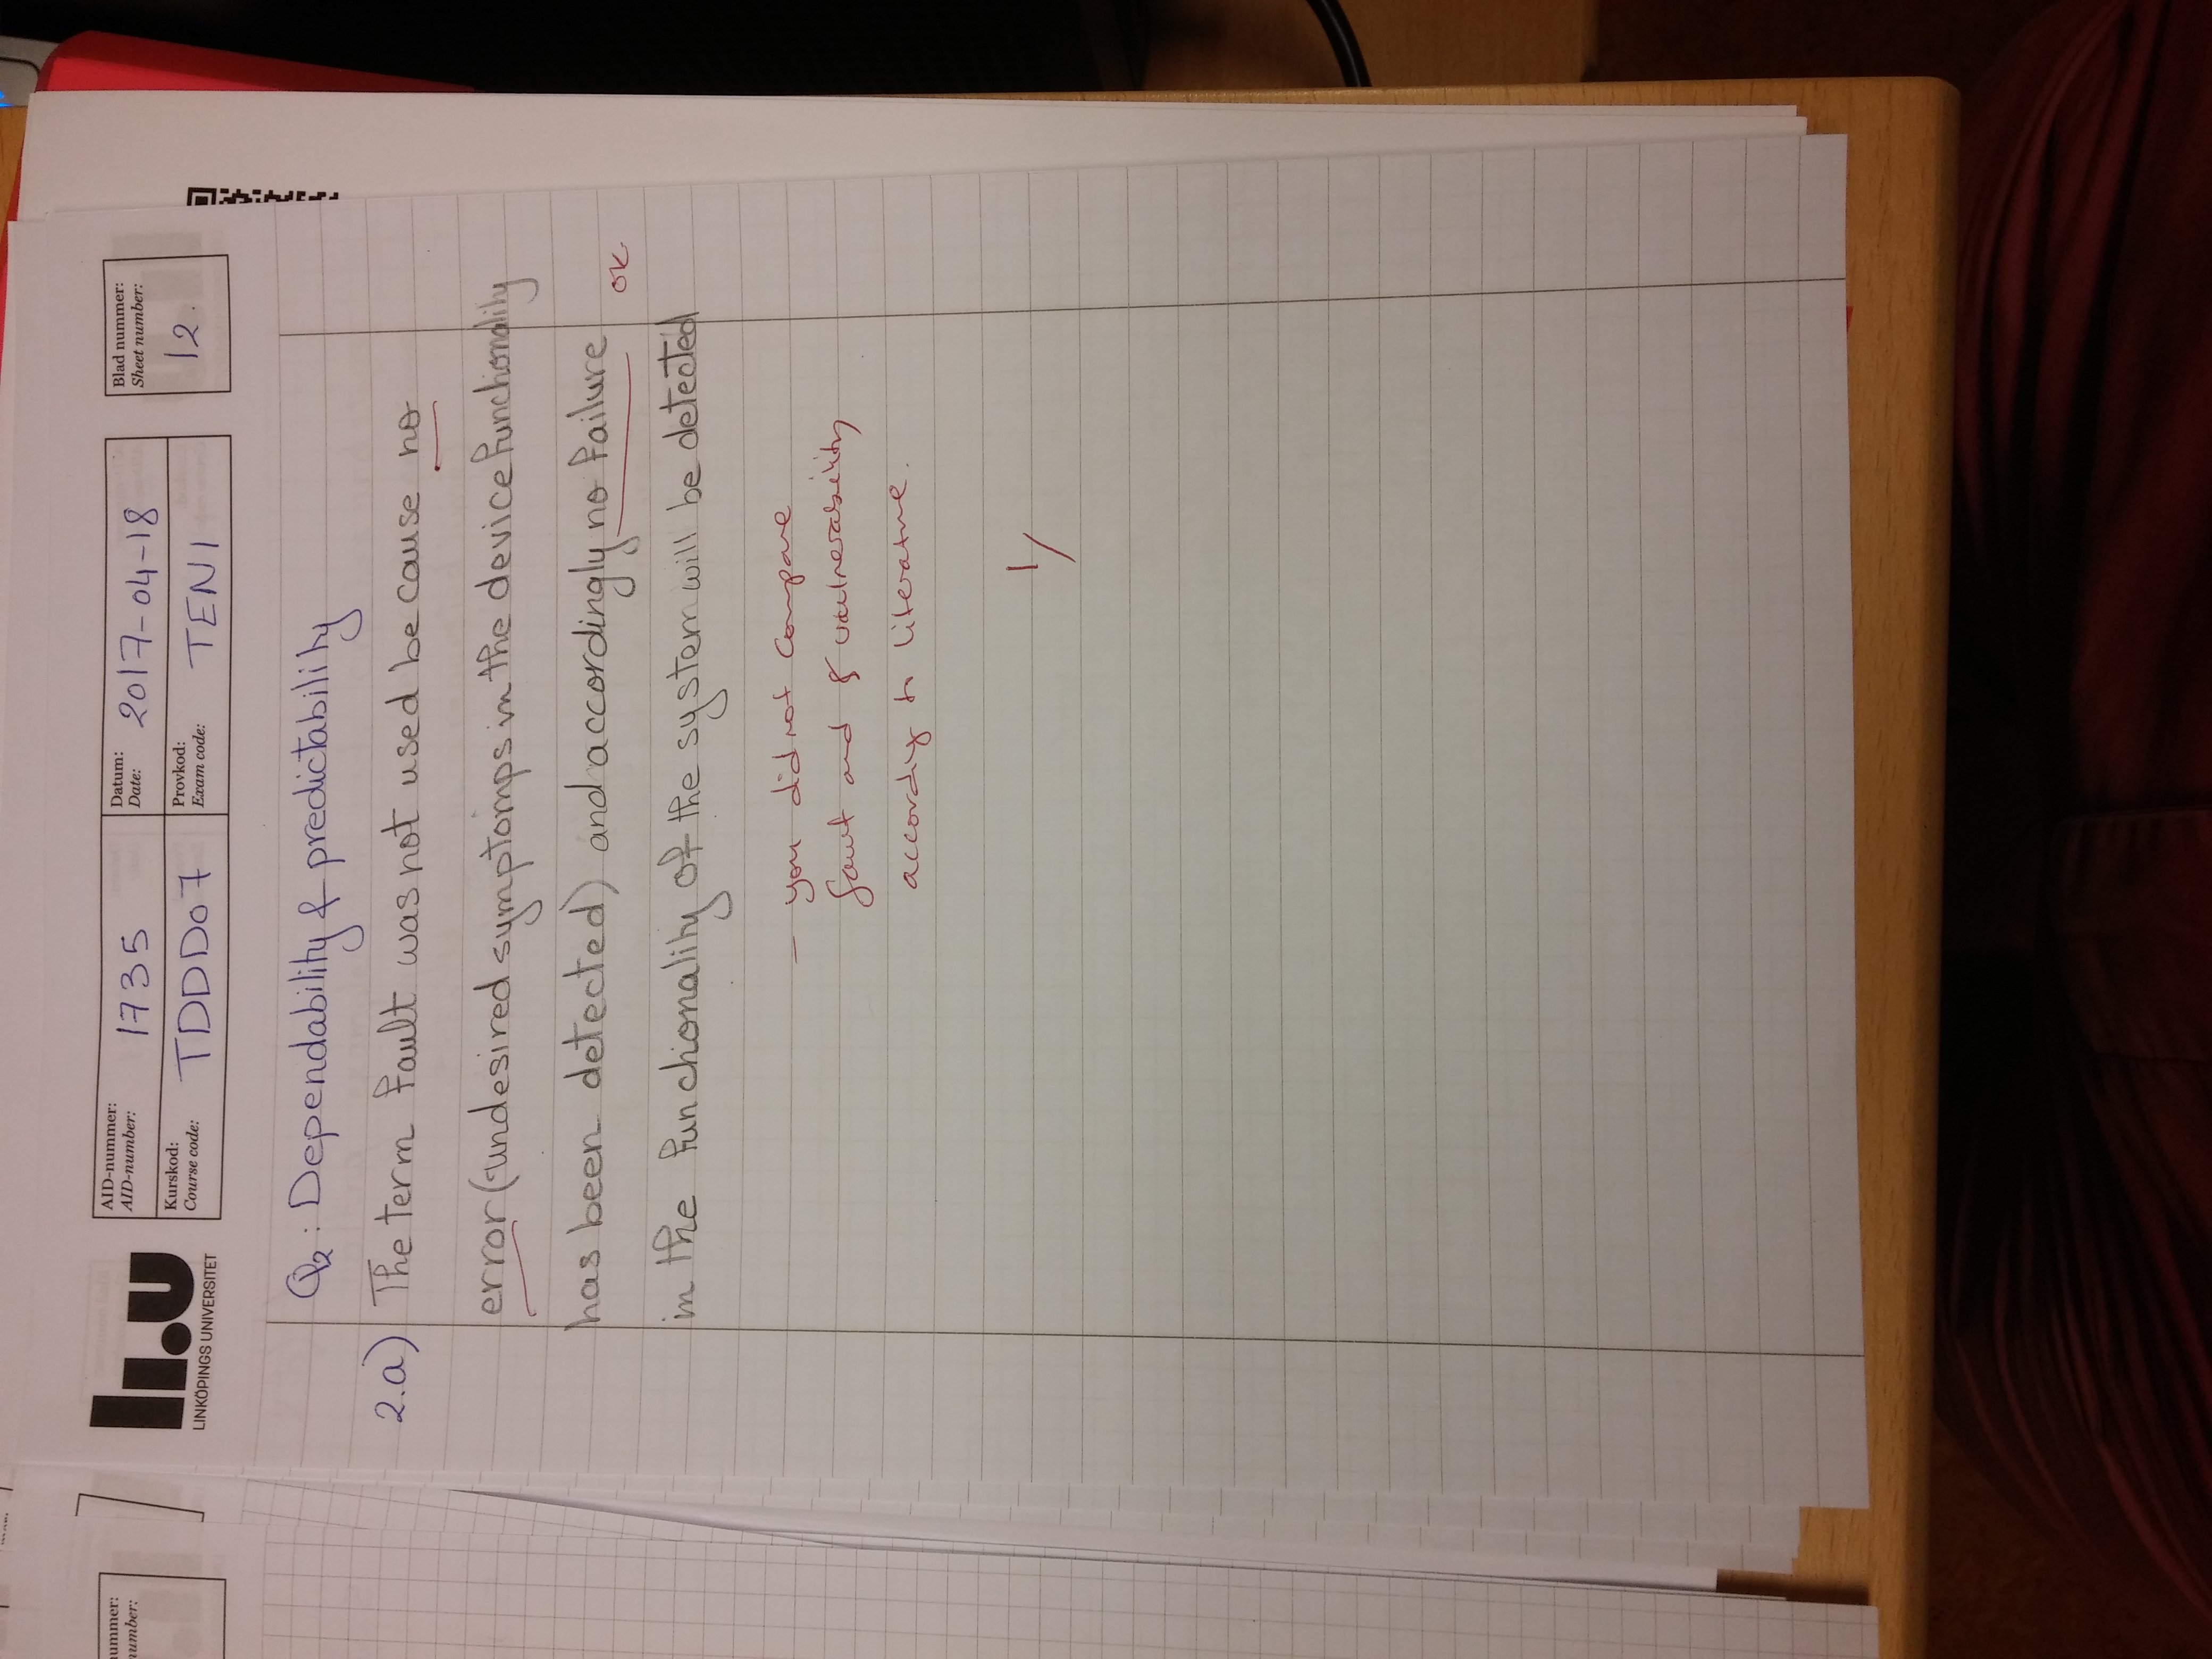 LIU
LINKÖPINGS UNIVERSITET
AID-nummer:
AID-number:
1735
Datum:
Date:
2017-04-18
Blad nummer:
Sheet number:
12.
Kurskod:
Course code:
TDDD07
Provkod:
Exam code:
TEN1
Q2: Dependability & predictability
2.a) The term fault was not used be cause no
error (undesired symptomps in the device functionality
has been detected) and accordingly no failure
ok
in the functionality of the system will be detected
- you did not compare
fault and & vulnerability
according to literature.
1/
ummer:
number: